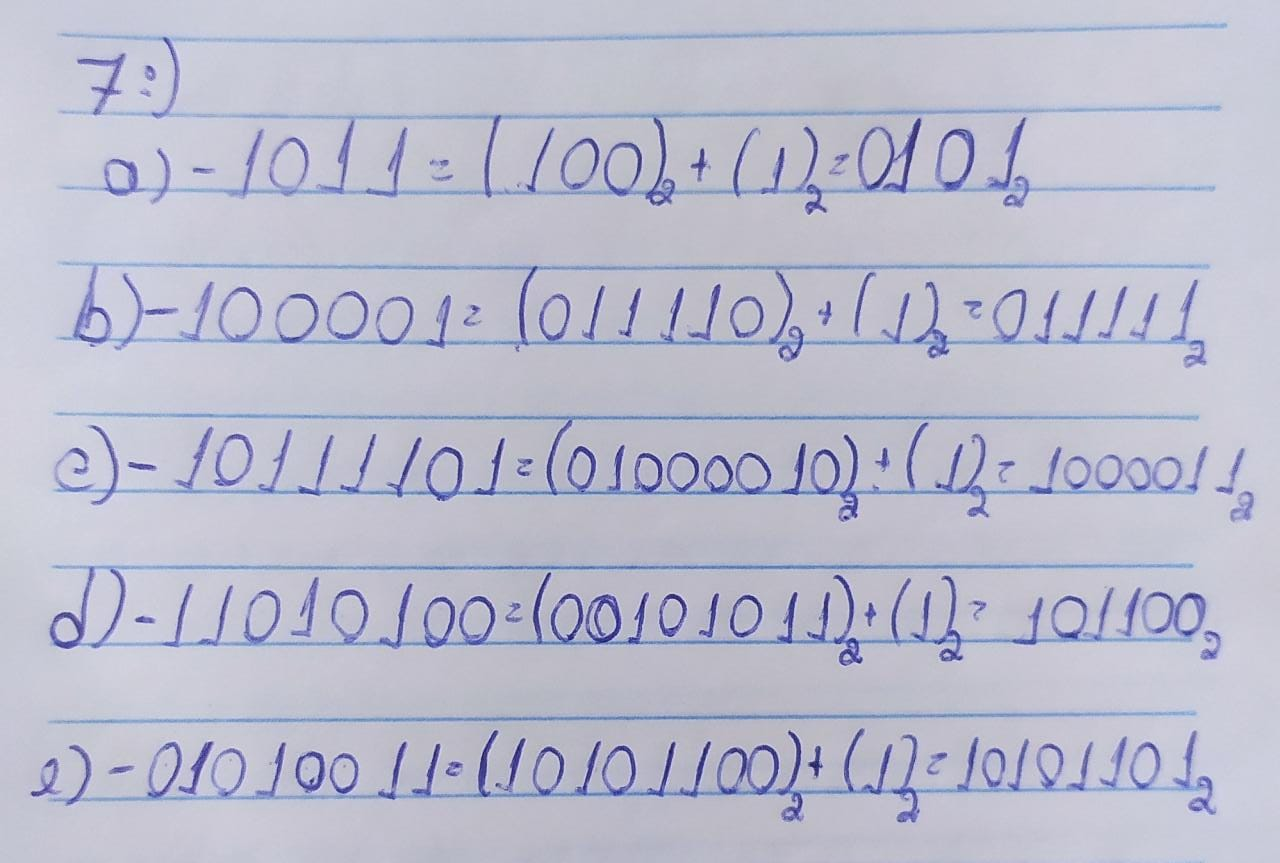 7:)
a) -1011 = (100)₂ + (1)₂ = 0101₂
b) -100001 = (011110)₂ + (1)₂ = 011111₂
c) -10111101 = (01000010)₂ + (1)₂ = 1000011₂
d) -11010100 = (00101011)₂ + (1)₂ = 101100₂
e) -01010011 = (10101100)₂ + (1)₂ = 10101101₂